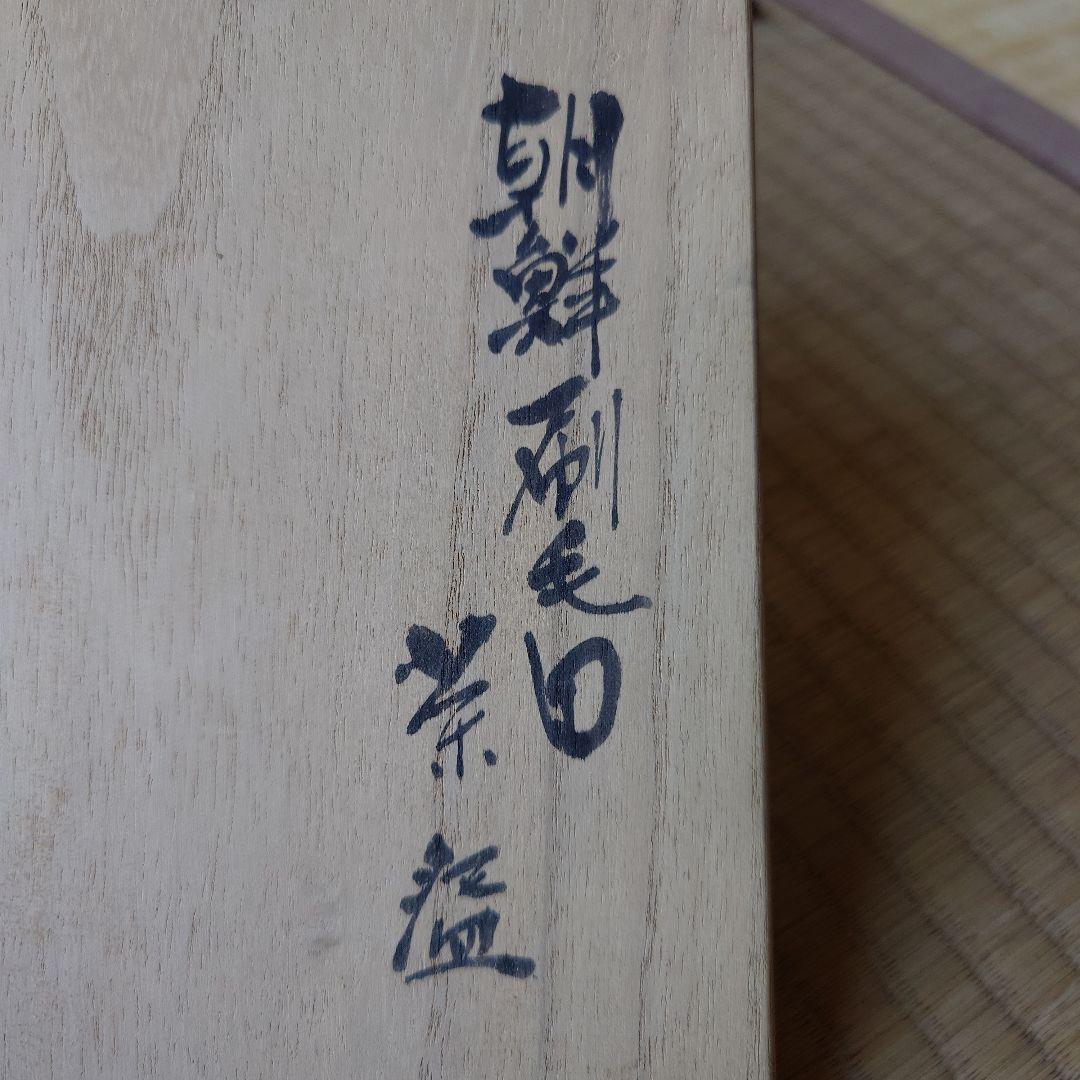 朝鮮刷毛目
茶盌